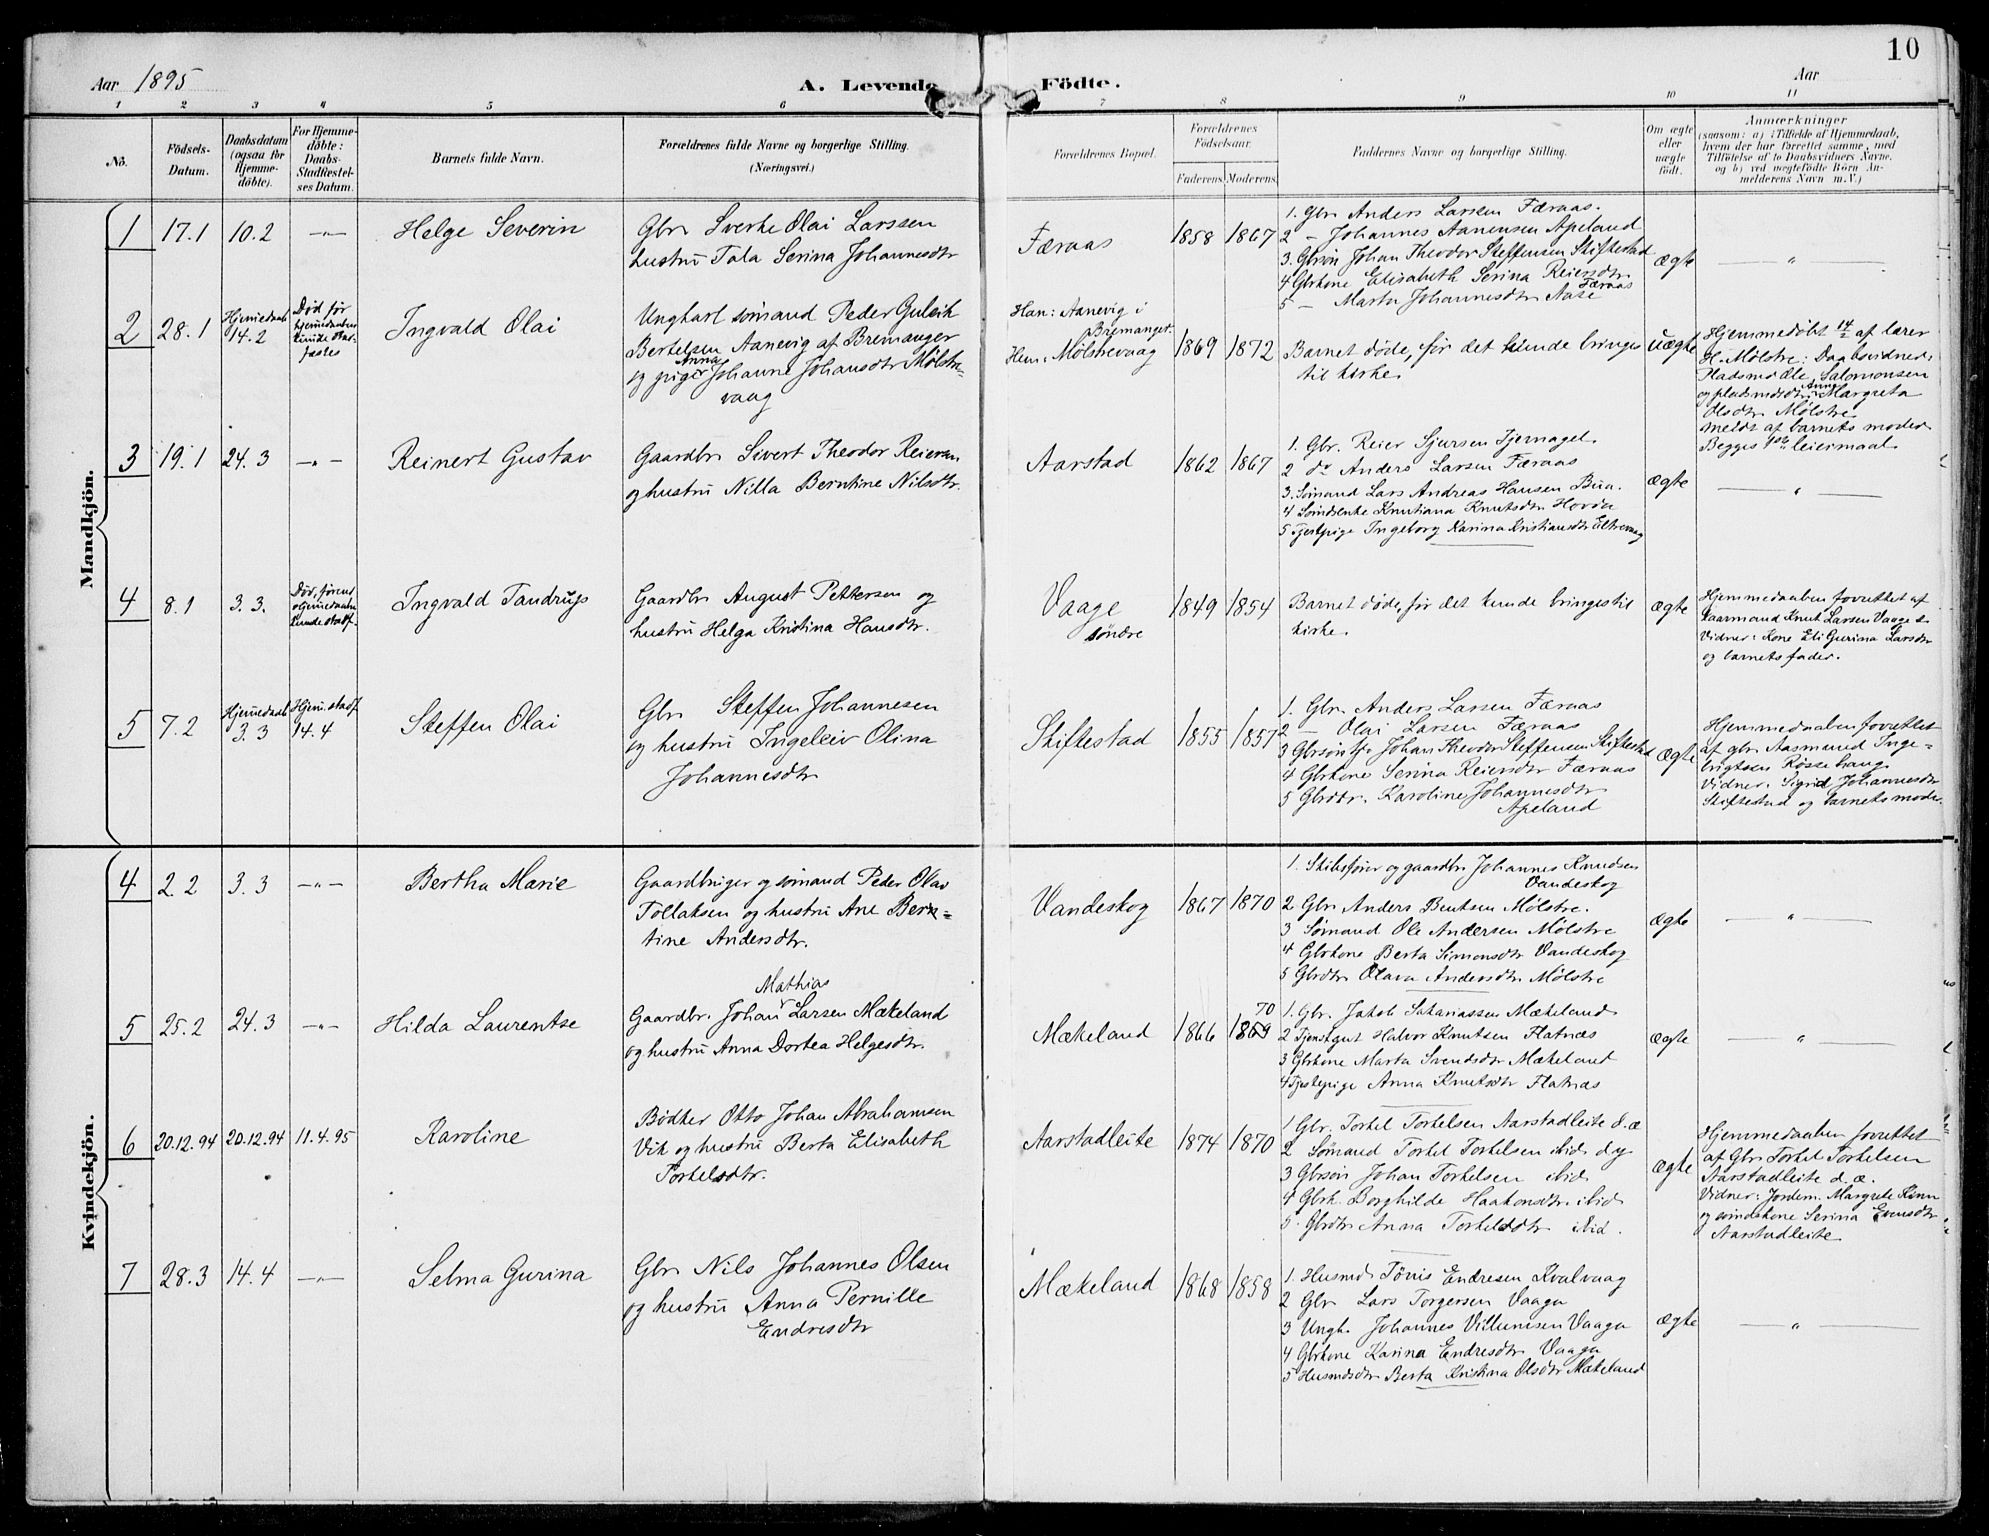 10
Aar 1895
A. Levende Födte.
Aar
1 2 3 4 5 6 7 8 9 10 11
Nö.
Födsels-
Datum.
Daabsdatum
(ogsaa for
Hjemme-
döbte).
For Hjemme-
döbte:
Daabs-
Stadfæstel-
ses Datum.
Barnets fulde Navn.
Forældrenes fulde Navne og borgerlige Stilling.
(Næringsvei.)
Forældrenes Bopæl.
Forældrenes
Födselsaar.
Faderens. Moderens.
Faddernes Navne og borgerlige Stilling.
Om ægte
eller
uægte
födt.
Anmærkninger
(saasom: a) i Tilfælde af Hjemmedaab,
hvem der har forrettet samme, med
Tilföielse af to Daabsvidners Navne.
og b) ved uægtefödte Börn An-
melderens Navn m.V.)
Mandkjön.
1 17.1 10.2 —"— Helge Severin
Gbr Sverke Olai Larssen
hustru Tala Serina Johannesdtr
Færaas
1858 1867
1. Gbr Anders Larsen Færaas.
2 — Johannes Aanensen Apeland
3. Gbrsøn Johan Theodor Steffensen Skiftestad
4 Gbrkone Elisabeth Serina Reiersdtr
Færaas
5 — Marta Johannesdtr Aase
ægte
—"—
2 28.1 Hjemedaab
14.2
Død før
hjemedaaben
kunde stad-
fæstes
Ingvald Olai
Ungkarl sømand Peder Guleik
Bertelsen Aanevig af Bremanger
og pige Johanne Johansdtr Mølstre-
vaag
Han: Aanevig i
Bremanger.
Hun: Mølstrevaag
1869 1872
Barnet døde, før det kunde bringes
til kirke.
uægte
Hjemmedøbt 14/2 af lærer
H. Mølstre: Daabsvidner:
Salomonsen
Margreta
Olsdtr Mølstre
meldt af barnets moder
Begges 1ste leiermaal
3 19.1 24.3 —"— Reinert Gustav
Gaardbr Sivert Theodor Reiersen
og hustru Nilla Berntine Nilsdtr.
Aarstad
1862 1867
1. Gbr. Reier Sjursen Tjernagel
2 do Anders Larsen Færaas
3. Sømand Lars Andreas Hansen Bua.
4 Knutiana Knutsdtr Hovda
5 Tjestepige Ingeborg Karina Kristiansdtr Eltrevaag
ægte
—"—
4 8.1 3.3.
Død, førend
hjemedaaben
kunde stadf.
Ingvald Tandrup
Gaardbr August Pettersen og
hustru Helga Kristina Hansdtr.
Vaage
søndre
1849 1854
Barnet døde, før det kunde bringes til
kirke.
ægte
Hjemmedaaben forrettet af
Gaarmand Knut Larsen Vaage s
Vidner: Kone Eli Gurina Larsdtr
og barnets fader.
5 7.2 Hjemedaab
3.3
Hjem. stadf
14.4
Steffen Olai
Gbr Steffen Johannesen
og hustru Ingeleiv Olina
Johannesdtr
Skiftestad
1855 1857
1. Gbr. Anders Larsen Færaas
2 — Olai Larsen Færaas
3 Gbrsøn Johan Theodor Steffensen Skiftestad
4 Gbrkone Serina Reiersdtr Færaas
5 Gbrdtr. Karoline Johannesdtr
Apeland
ægte
Hjemmedaaben forrettet
af gbr Aasmund Inge-
brigtsen Røssehaug
Vidner. Sigrid Johannesdtr
Skiftestad og barnets moder.
Kvindekjön.
4 2.2 3.3 —"— Bertha Marie
Gaardbruger og sømand Peder Olav
Tollaksen og hustru Ane Bern=
tine Andersdtr.
Vandeskog
1867 1870
1. Skibsfører og gaardbr Johannes Knudsen
Vandeskog
2 Gbr Anders Bentsen Mølstre.
3 Sømand Ole Andersen Mølstre
4 Gbrkone Berta Simonsdtr Vandeskog
5 Gbrdtr Olava Andersdtr Mølstre
ægte
—"—
5 25.2 24.3 —"— Hilda Laurentse
Mathias
Gaardbr. Johan Larsen Mækeland
og hustru Anna Dortea Helgesdtr.
Mækeland
70
1866 1869
1. Gbr. Jakob Sakariassen Mækeland
2 Tjenstgut Halvor Knutsen Flatnæs
3 Gbrkone Marta Svendsdtr Mækeland
4 Tjestepige Anna Knutsdtr Flatnæs
ægte
—"—
6 20.12.94 20.12.94 11.4.95 Karoline
Bødker Otto Johan Abrahamsen
Vik og hustru Berta Elisabeth
Torkelsdtr.
Aarstadleite
1874 1870
1 Gbr. Torkel Torkelsen Aarstadleite d.æ
2 Sømand Torkel Torkelsen ibid d.y.
3 Gbrsøn Johan Torkelsen ibid
4 Gbrk. Borghilde Haakonsdtr. ibid
5. Gbrdtr Anna Torkelsdtr ibid.
ægte
Hjemmedaaben forrettet
af Gbr Torkel Torkelsen
Aarstadleite d.æ.
Vidner: Jordem. Margrete Kinn
og Serina Evensdtr
Aarstadleite.
7 28.3 14.4 —"— Selma Gurina
Gbr Nils Johannes Olsen
og hustru Anna Pernille
Endresdtr
Mækeland
1868 1858
1. Husmd. Tønis Endresen Kvalvaag
2 Gbr Lars Torgersen Vaaga
3 Ungk. Johannes Villumsen Vaaga
4 Gbrkone Karina Endresdtr Vaaga
5 Husmdsdtr Berta Kristina Olsdtr Mækeland
ægte
—"—